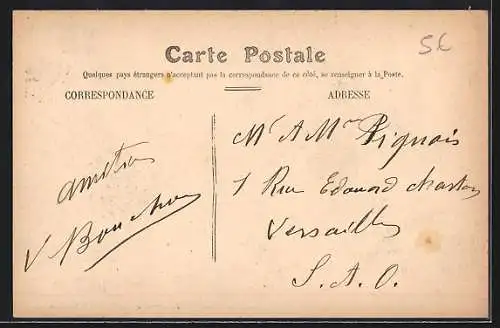 5€
Carte Postale
Quelques pays étrangers n'acceptant pas la correspondance de ce côté, se renseigner à la Poste.
CORRESPONDANCE
ADRESSE
Mr & Mme Pignois
1 Rue Edouard Charton
Versailles
S. & O.
Amitiés